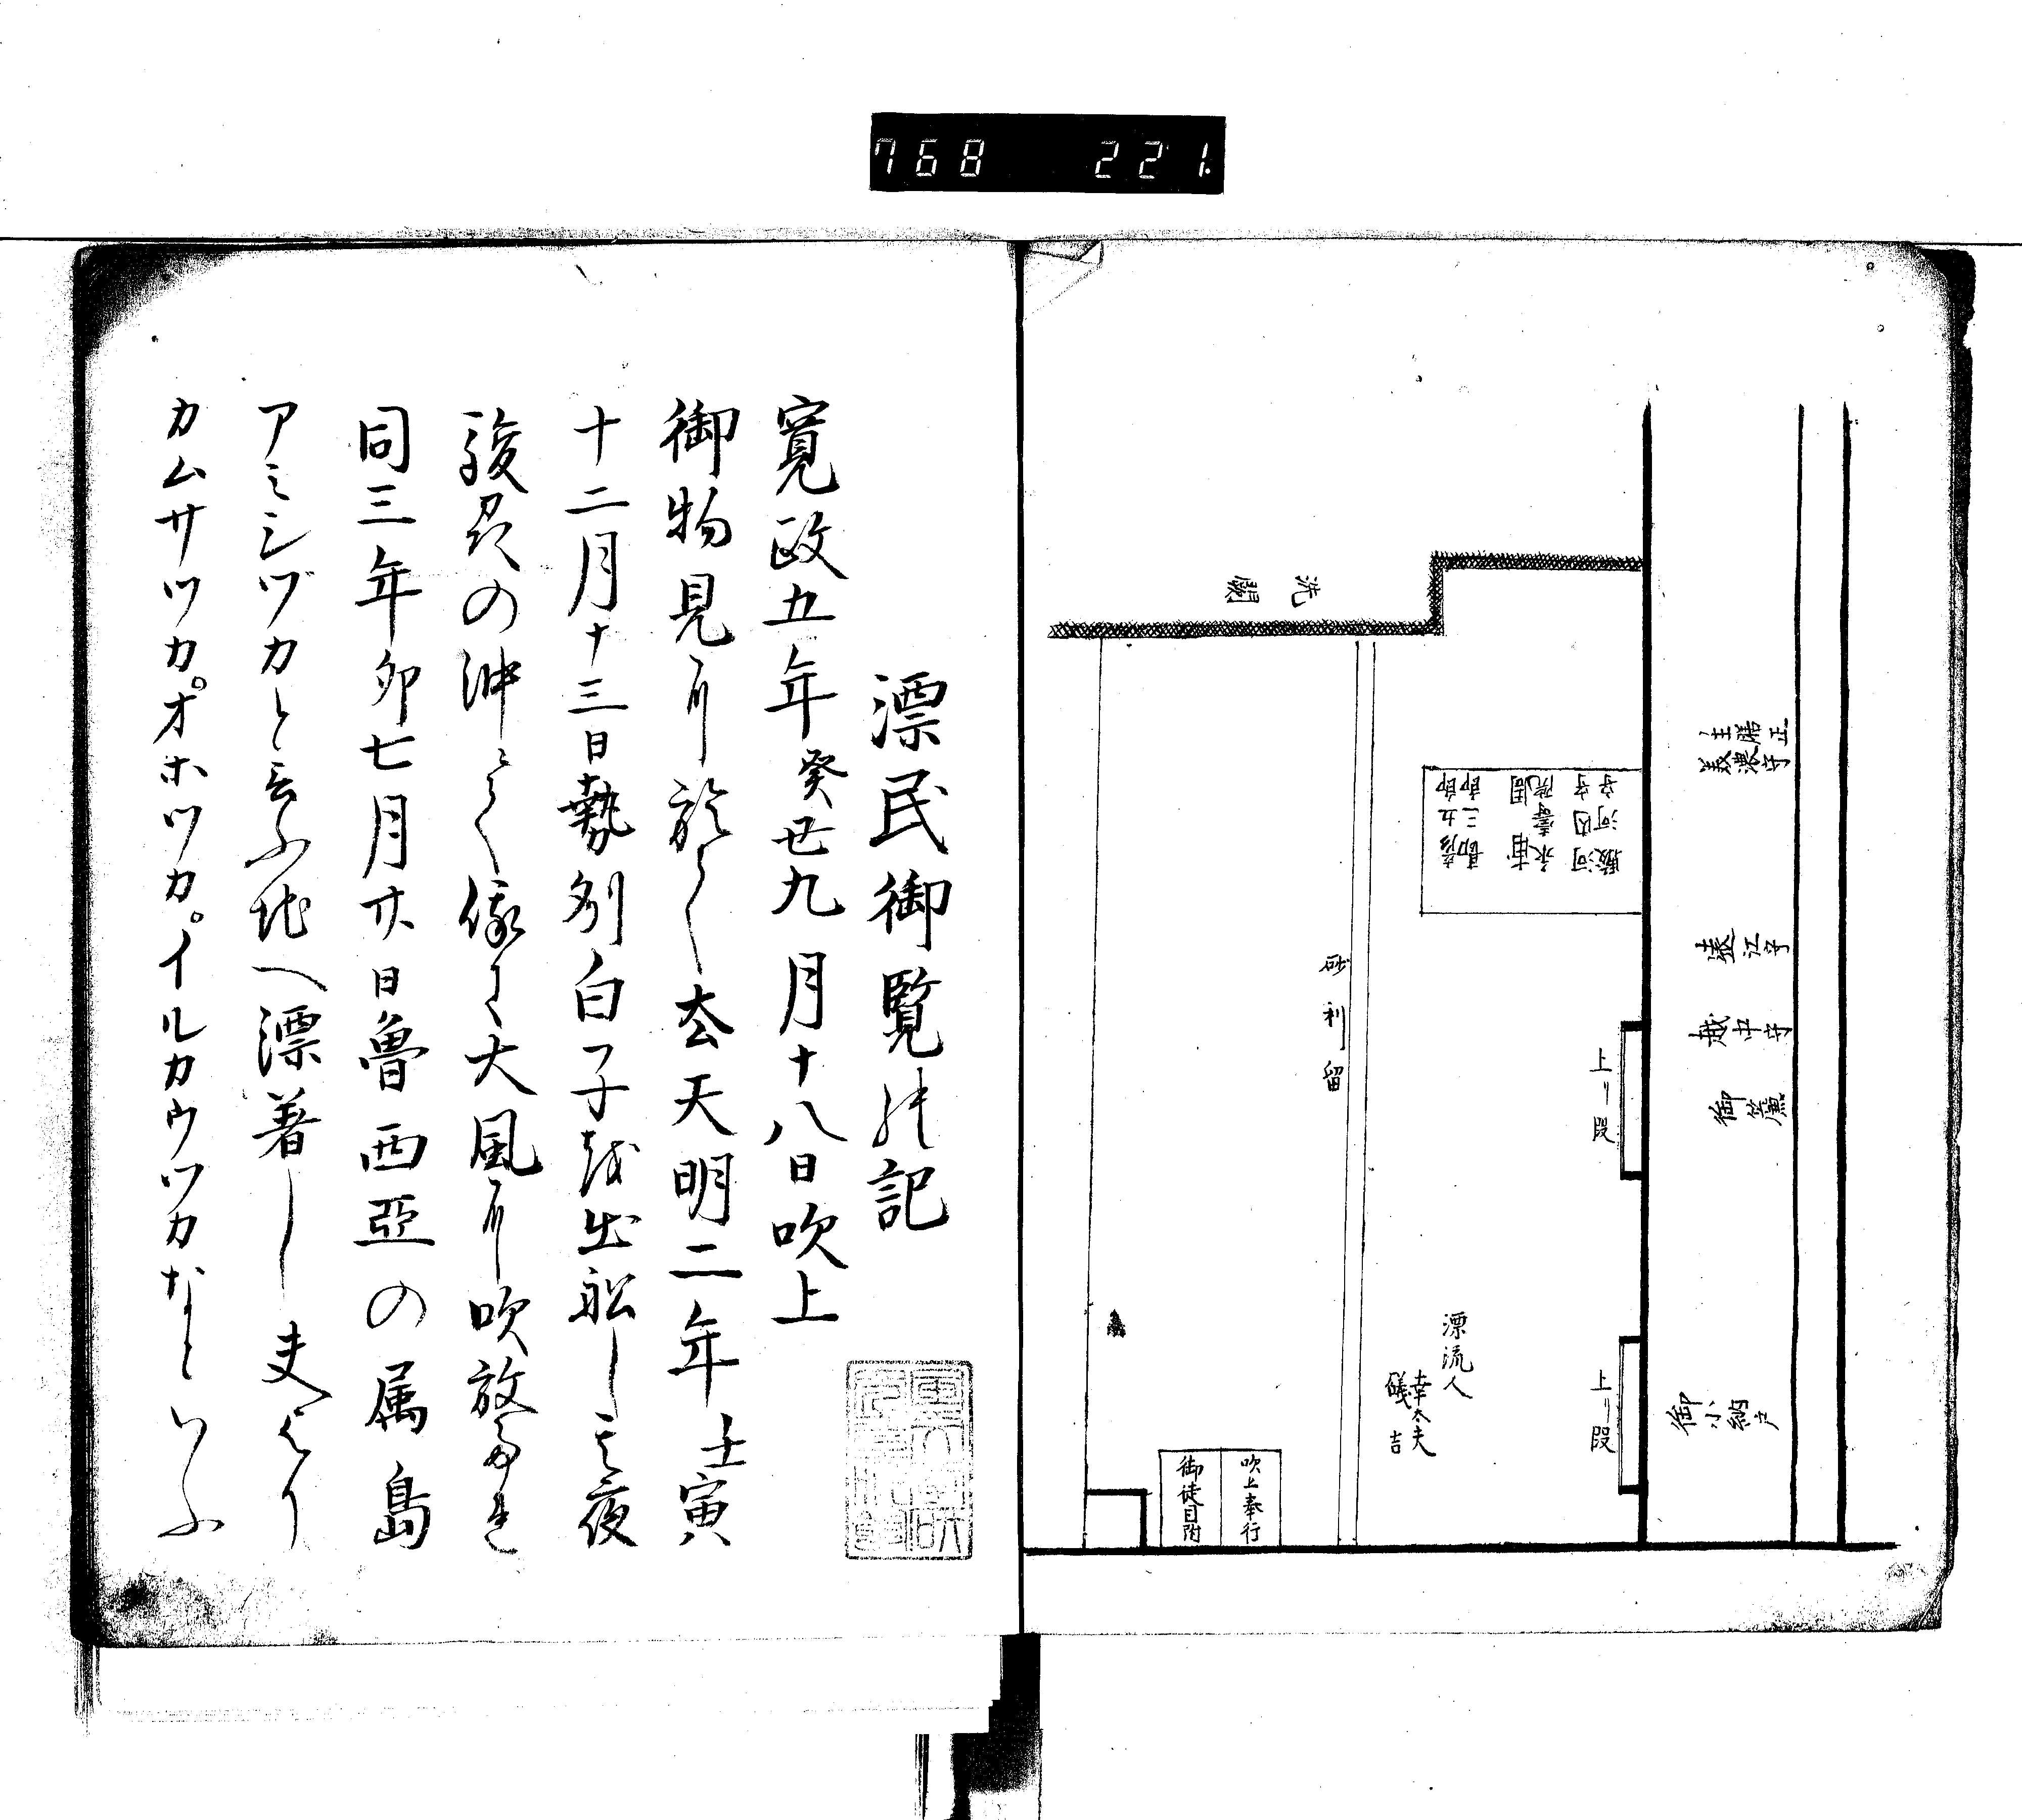 768 221
主膳正
美濃守
遠江守
越中守
御簾
御小納戸
上リ段
上リ段
駿河守
河内守
永壽院
甫周
勘三郎
彦五郎
洗関
砂利留
漂流人
幸太夫
儀吉
吹上奉行
御徒目附
漂民御覧之記
寛政五年癸丑九月十八日吹上
御物見に於て去天明二年壬寅
十二月十三日勢州白子を出船し其夜
駿及の沖にて俄に大風に吹放され
同三年卯七月廿日魯西亜の属島
アミシヅカと云ふ地へ漂著し夫より
カムサツカオホツカイルカウツカなといふ